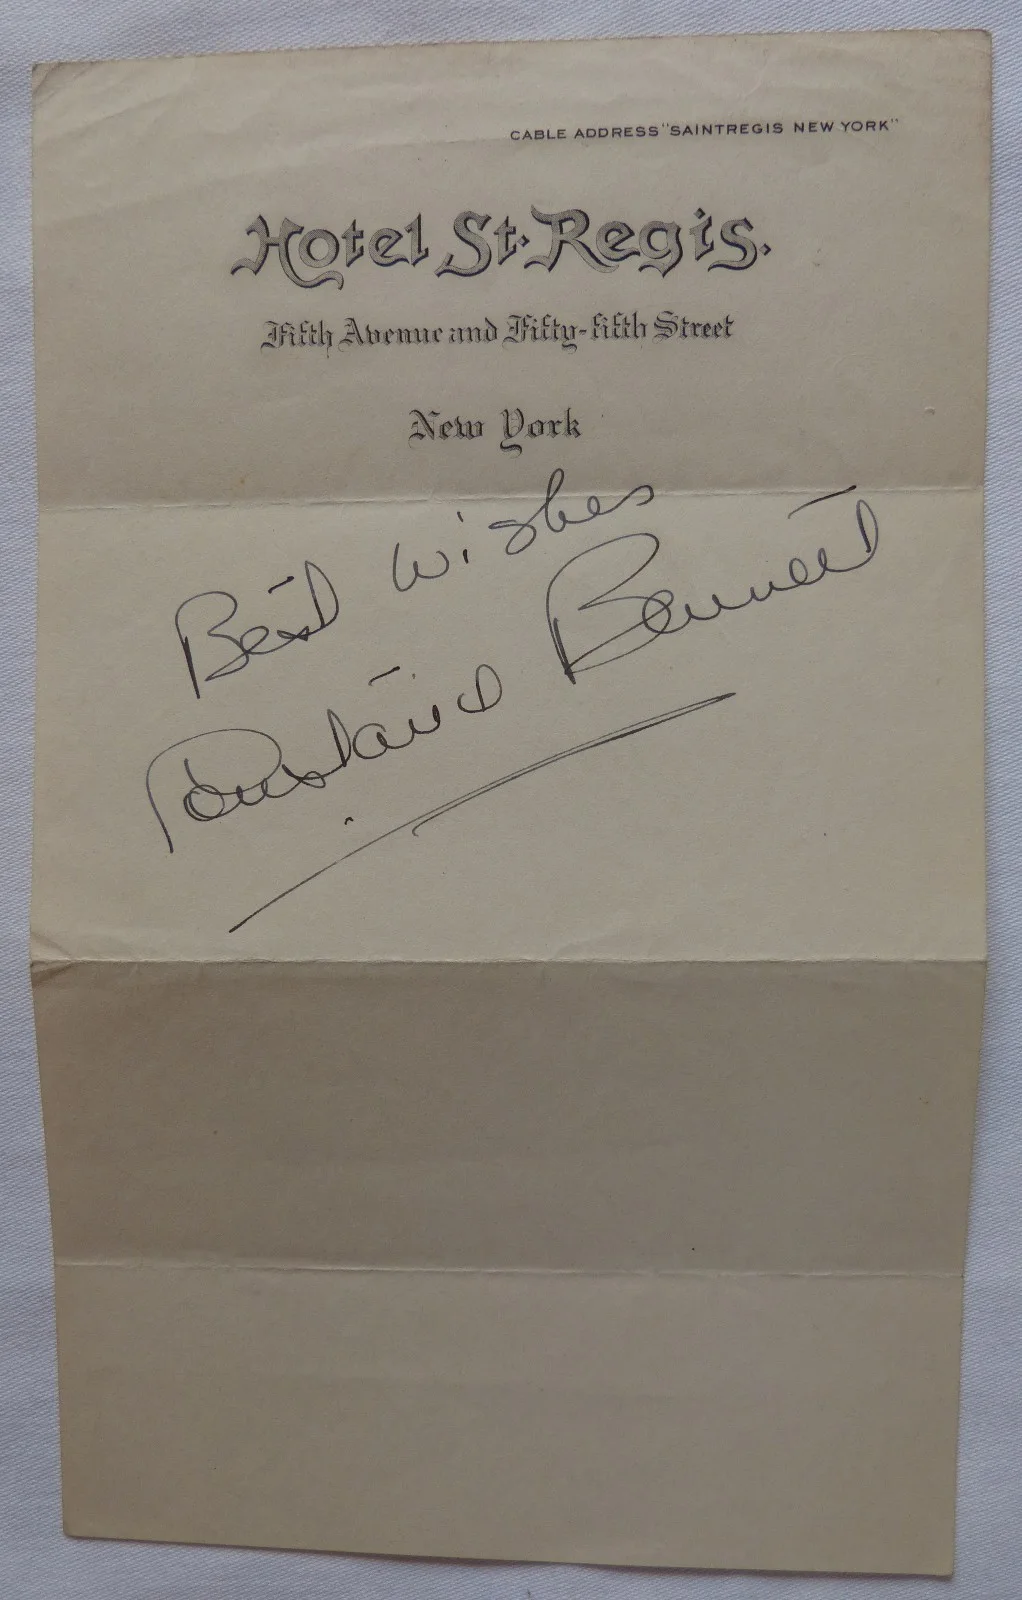 CABLE ADDRESS "SAINTREGIS NEW YORK"
Hotel St. Regis.
Fifth Avenue and Fifty-fifth Street
New York
Best Wishes
Constance Bennett